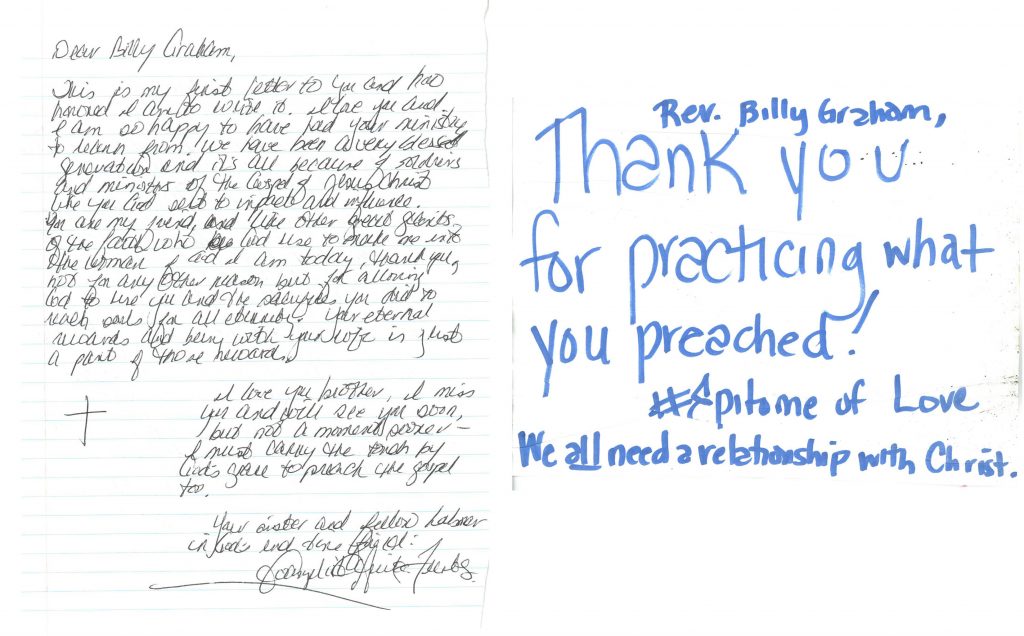 Dear Billy Graham,
This is my first letter to you and how
honored I am to write it. I love you and
I am so happy to have had your ministry
to learn from. We have been a very blessed
generation and it's all because of soldiers
and ministers of the Gospel of Jesus Christ
like you God sent to impact and influence.
You are my friend, and like other great saints
of the faith who God use to make me into
the woman of God I am today, thank you,
not for any other reason but for allowing
God to use you and the sacrifices you did to
reach souls for all eternity. Your eternal
rewards and being with your wife is just
a part of those rewards.
I love you brother, I miss
you and will see you soon,
but not a moment sooner –
I must carry the torch by
God's grace to preach the gospel
too.
Your sister and fellow laborer
in God's end time
Evangelist
Rev. Billy Graham,
Thank you
for practicing what
you preached!
#Epitome of Love
We all need a relationship with Christ.